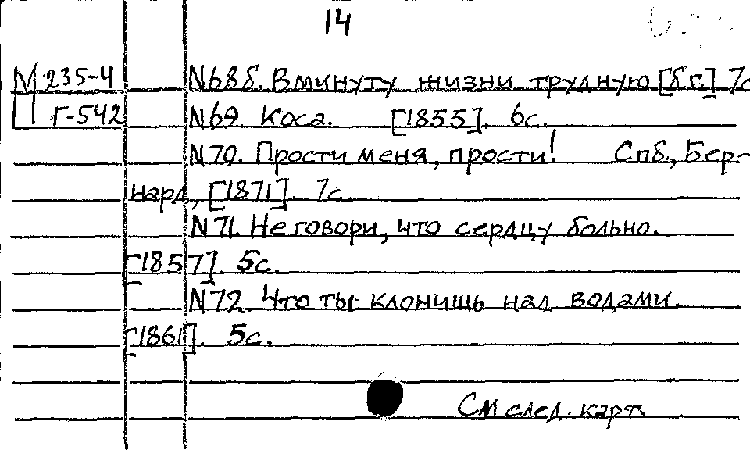 14
М 235-4 N68б. В минуту жизни трудную [б.г.] 7с
Г-542 N69. Коса. [1855]. 6с.
N70. Прости меня, прости! Спб., Бер-
нард, [1871]. 7с.
N71. Не говори, что сердцу больно.
[1857]. 5с.
N72. Что ты клонишь над водами.
[1861]. 5с.
См след. карт.